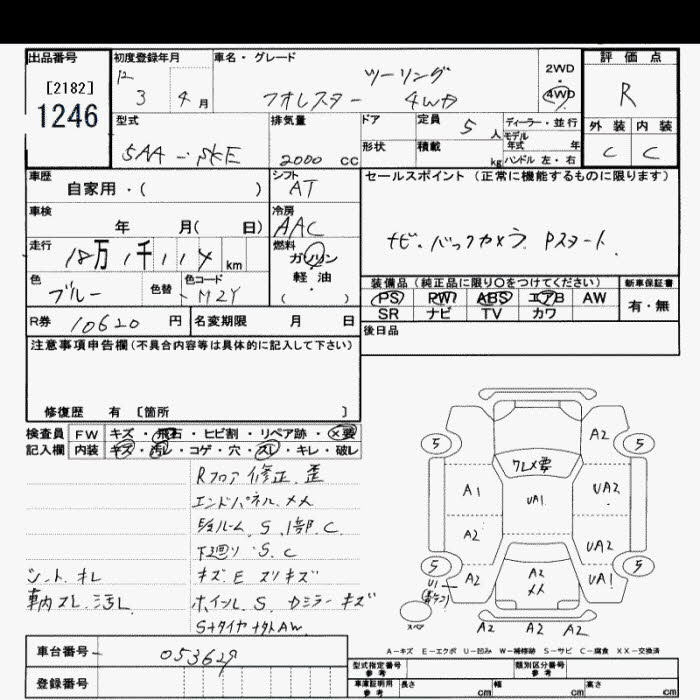 出品番号
[2182]
1246
初度登録年月
3 4月
車名・グレード
ツーリング
フォレスター 4WD
2WD
・
4WD
評価点
R
外装 内装
C C
型式
5AA-SKE
排気量
2000 CC
ドア
形状
定員 5 人
積載 kg
ディーラー・並行
モデル
年式 年
ハンドル 左・右
車歴
自家用・( )
シフト
AT
セールスポイント (正常に機能するものに限ります)
ナビ.バックカメラ Pスタート.
車検
年 月( 日)
冷房
AAC
走行
18万1千114km
燃料
ガソリン
軽・油
( )
色
ブルー
色替
色コード
M2Y
装備品 (純正品に限り○をつけてください)
PS PW ABS エアB AW
SR ナビ TV カワ
新車保証書
有・無
R券 10620 円
名変期限 月 日
後日品
注意事項申告欄(不具合内容等は具体的に記入して下さい)
修復歴 有 [箇所 ]
検査員
記入欄
FW キズ・飛石・ヒビ割・リペア跡・×要
内装 キズ・汚レ・コゲ・穴・スレ・キレ・破レ
Rフロア修正.歪
エンドパネル.メメ
S.1部.C.
下廻り S.C
シート.キレ
キズ.E スリキズ
車内スレ.汚レ
ホイール.S. カミラーキズ
AW.
5
A2
5
クレメ要
A1
UA1
UA2
A2
UA2
5
U1
A2
A2
メメ
UA1
5
スペア
A2 A2 A2
A-キズ E-エクボ U-凹み W-補修跡 S-サビ C-腐食 XX-交換済
車台番号 053629
登録番号
型式指定番号
参考
類別区分番号
参考
車庫証明用
参考
長さ cm 幅 cm 高さ cm